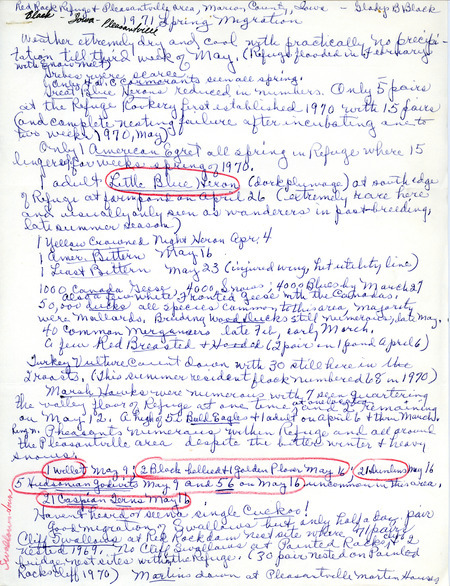 Red Rock Refuge & Pleasantville area, Marion County, Iowa - Gladys B Black
Black - Iowa - Pleasantville
1971 Spring Migration
Weather extremely dry and cool with practically no precipi-
tation till third week of May. (Refuge flooded in February
with snow melt)
Grebes were scarce.
Only 4 D.C. Cormorants seen all spring.
Great Blue Herons reduced in numbers. Only 5 pairs
at the Refuge Rookery first established 1970 with 15 pairs
(and complete nesting failure after incubating one to
two weeks, 1970, May)
Only 1 American Egret all spring in Refuge where 15
lingered for weeks spring of 1970.
1 adult Little Blue Heron (dark plumage) at south edge
of Refuge at farm pond on April 26 (extremely rare here
and usually only seen as wanderers in post breeding,
late summer season)
1 Yellow Crowned Night Heron Apr. 4
1 Amer. Bittern May 16
1 Least Bittern May 23 (injured wing, hit utility line)
1000 Canada Geese, 4000 Snows, 4000 Blues by March 27
Also a few White Fronted Geese with the Canadas.
50,000 ducks all species common to this area, majority
were Mallards. Breeding Wood Ducks still numerous, late May.
40 Common Mergansers late Feb, early March.
A few Red Breasted & Hooded (2 pair in 1 pond April 6)
Turkey Vulture count down with 30 still here in the
roost. (This summer resident flock numbered 68 in 1970)
Marsh Hawks were numerous with 7 seen quartering
the valley floor of Refuge at one time and 2 remaining
on May 12. A high of 5 Bald Eagle + 1 adult on April 6 thru March.
Pheasants numerous within Refuge and all around
the Pleasantville area despite the bitter winter & heavy
snows.
1 Willet May 9; 2 Black bellied + 1 Golden Plover May 16; 21 Dunlins May 16
5 Hudsonian Godwits May 9 and 56 on May 16 uncommon in this area.
21 Caspian Terns May 16
Haven't heard or seen a single Cuckoo!
Good migration of Swallows but only half a day, pair
Cliff Swallows at Red Rock dam nest site where 47 pairs
nested 1969. No Cliff Swallows at Painted Rocks
bridge nest sites within the Refuge. (30 pair nested on Painted
Rocks Cliff, 1970) Martins down at Pleasantville Martin Houses